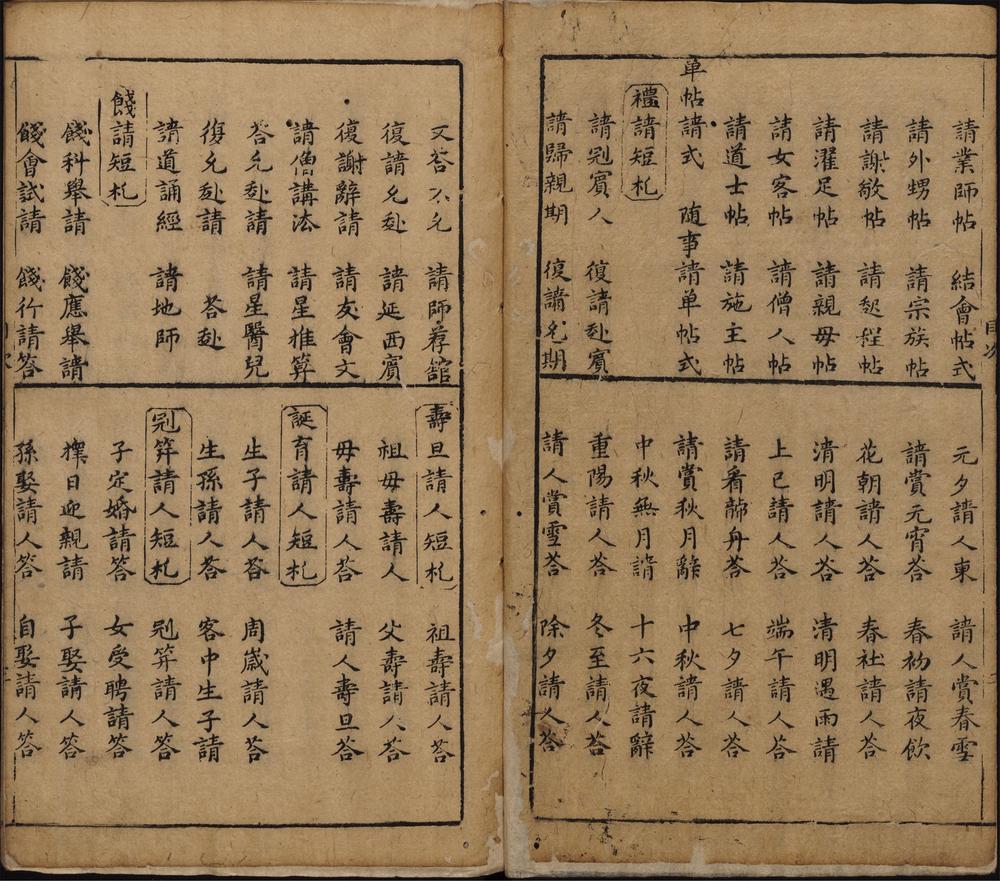 請業師帖 結會帖式
請外甥帖 請宗族帖
請謝敬帖 請起程帖
請濯足帖 請親母帖
請女客帖 請僧人帖
請道士帖 請施主帖
单帖請式 随事請单帖式
禮請短札
請冠賓人 復請赴賓
請歸親期 復請允期
元夕請人東 請人賞春雪
請賞元宵荅 春初請夜飲
花朝請人荅 春社請人荅
清明請人荅 清明遇雨請
上巳請人荅 端午請人荅
請看龍舟荅 七夕請人荅
請賞秋月辭 中秋請人荅
中秋無月請 十六夜請辭
重陽請人荅 冬至請人荅
請人賞雪荅 除夕請人荅
目次
又荅不允 請師荐舘
復請允赴 請延西賓
復謝辭請 請友會文
請僧講法 請星推算
荅允赴請 請星醫兒
復允赴請 荅赴
請道誦經 請地師
餞請短札
餞科舉請 餞應舉請
餞會試請 餞行請荅
壽旦請人短札 祖壽請人荅
祖母壽請人 父壽請人荅
母壽請人荅 請人壽旦荅
誕育請人短札
生子請人荅 周歲請人荅
生孫請人荅 客中生子請
冠笄請人短札 冠笄請人荅
子定婚請荅 女受聘請荅
擇日迎親請 子娶請人荅
孫娶請人荅 自娶請人荅